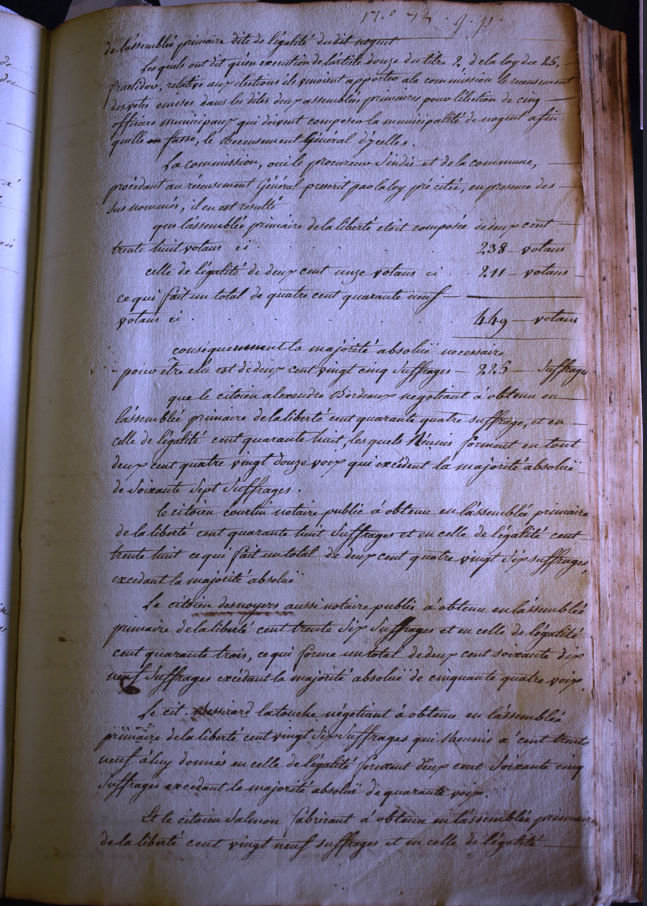 de lassemblée primaire dite de légalité du dit nogent
Les quels ont dit qu'en execution de lartile douze du titre 2. de la loy du 25.
fructidor, relative aux elections ils venoient apporter a la commission le recensement
des votes emises dans les dites deux assemblées primaires pour lélection de cinq
officiers municipaux qui doivent composer la municipalité de nogent afin
quelle fasse, le Recensement Général d'ycelles.
La commission, oui le procureur sindic et de la commune,
procédant au récensement Général prescrit par la loy pré citée, en presence des
sus nommés, il en est resulté
que lassemblée primaire de la liberté etoit composée de deux cent
trente huit votans ci 238 — votans
celle de légalité de deux cent unze votans ci 211 — votans
ce qui fait un total de quatre cent quarante neuf
votans ci 449 — votans
consequemment la majorité absoluë necessaire
pour être elu est de deux cent vingt cinq suffrages — 225 — suffrages
que le citoien alexendre Bordeaux negotiant à obtenu en
lassemblée primaire de la liberté cent quarante quatre suffrage, et en
celle de légalité cent quarante huit, les quels Réunis forment en tout
deux cent quatre vingt douze voix qui excédent la majorité absoluë
de soixante sept suffrages.
le citoien courtin notaire public à obtenu en lassemblée primaire
de la liberté cent quarante huit suffrages et en celle de légalité cent
trente huit ce qui fait un total de deux cent quatre vingt six suffrages
excedant la majorité absoluë
Le citoien desnoyers aussi notaire public à obtenu en lassemblée
primaire de la liberté cent trente six suffrages et en celle de légalité
cent quarante trois, ce qui forme un total de deux cent soixante dix
neuf suffrages excédant la majorité absoluë de cinquante quatre voix.
Le cit. latouche négotiant à obtenu en lassemblée
primaire de la liberté cent vingt six suffrages qui Réunis a cent trente
neuf à luy donnés en celle de légalité forment deux cent soixante cinq
suffrages excedant la majorité absoluë de quarante voix.
Et le citoien Salmon fabricant à obtenu en lassemblée primaire
de la liberté cent vingt neuf suffrages et en celle de légalité